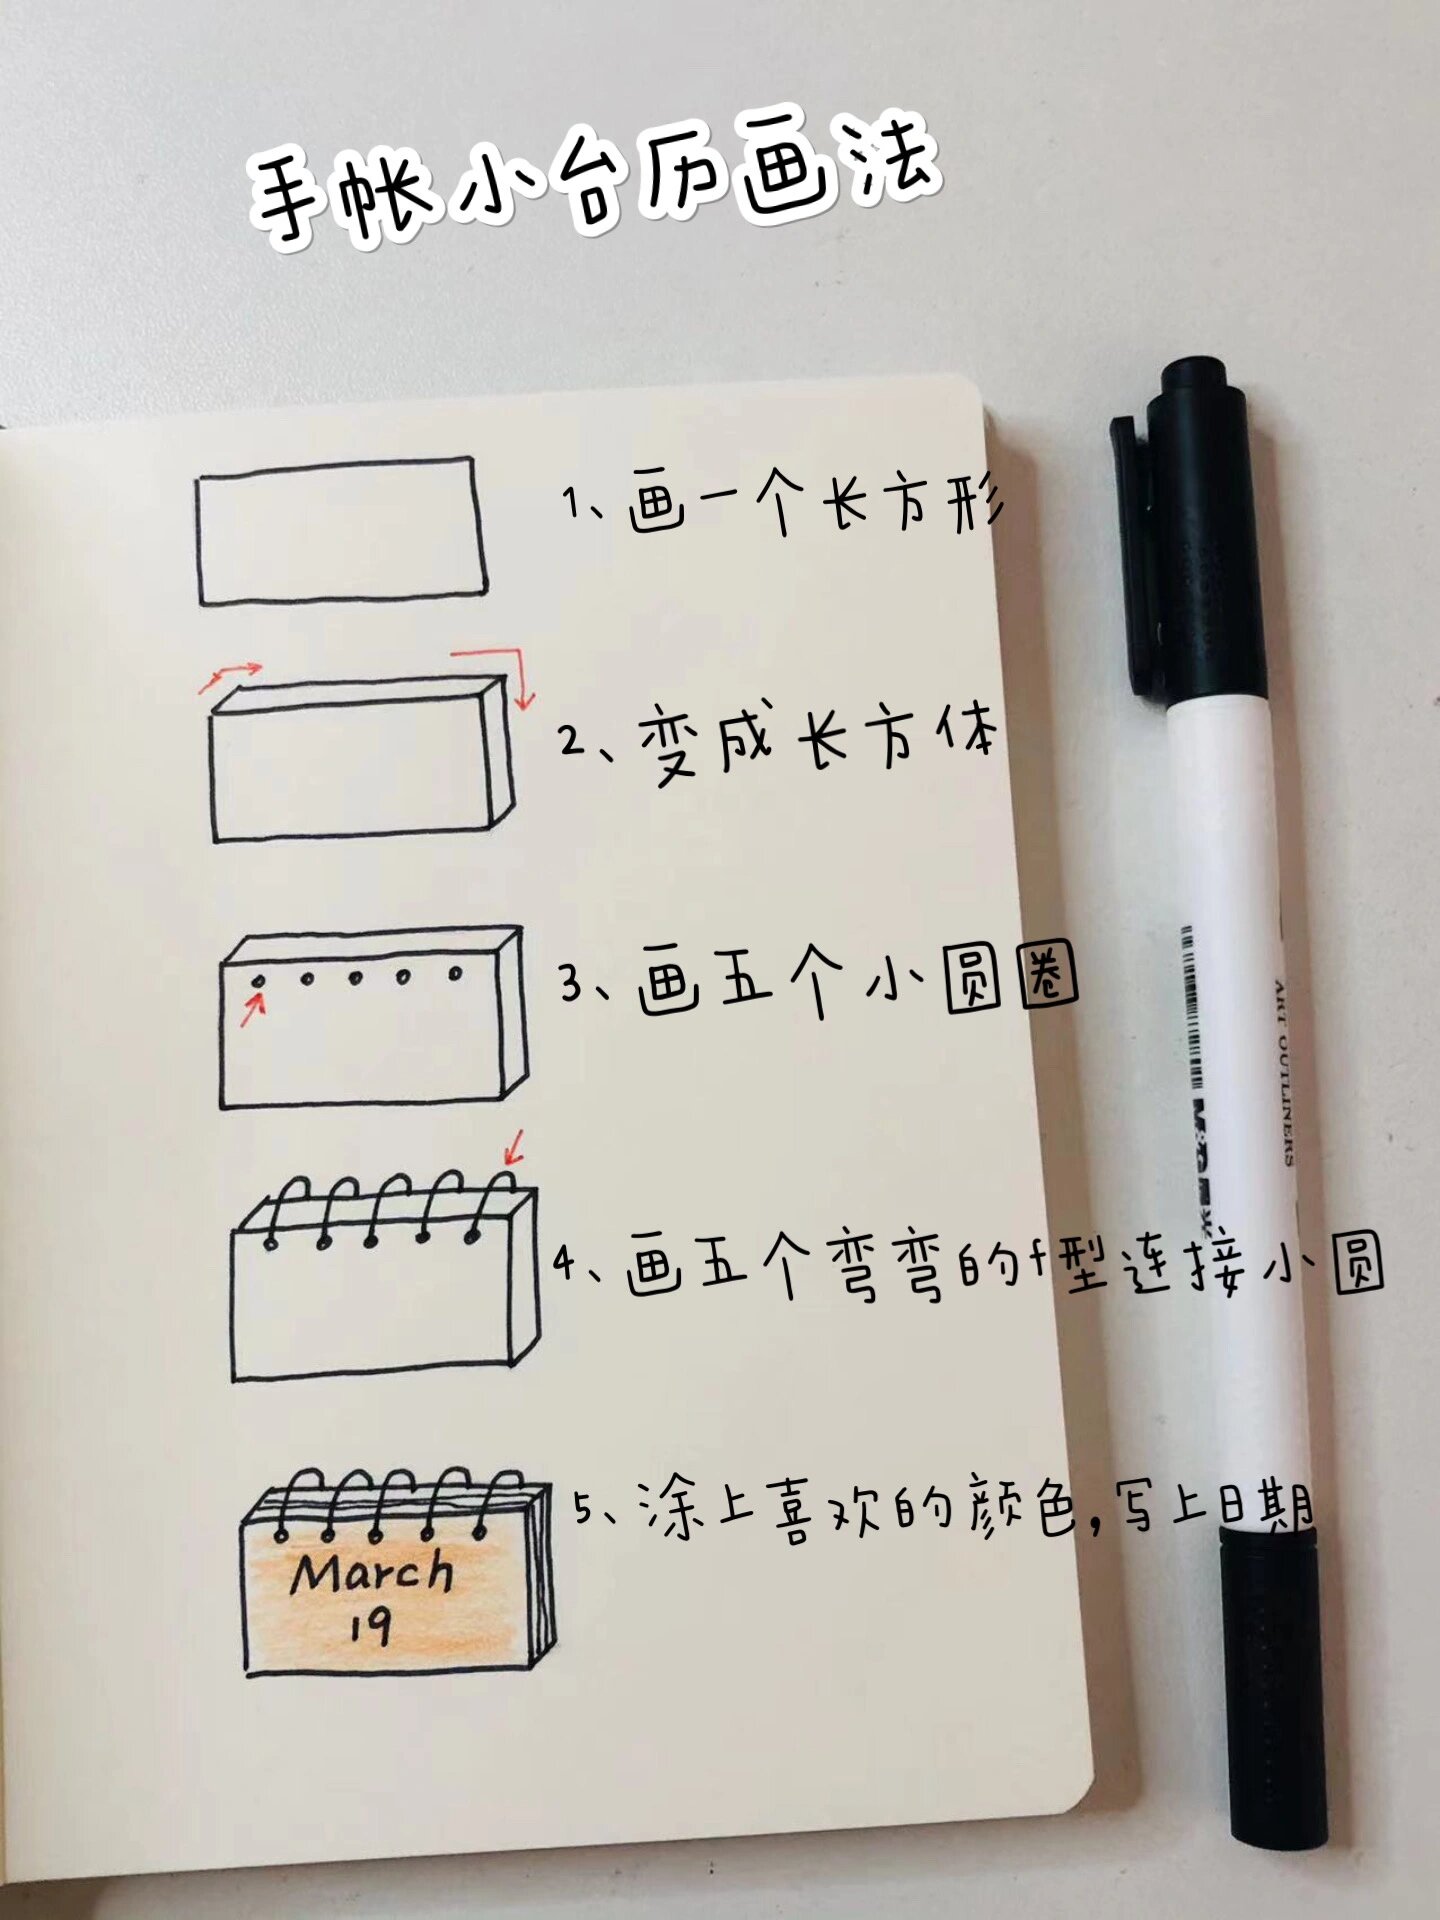 手帐小台历画法
1、画一个长方形
2、变成长方体
3、画五个小圆圈
4、画五个弯弯的f型连接小圆
5、涂上喜欢的颜色,写上日期
March
19
ART OUTLINERS